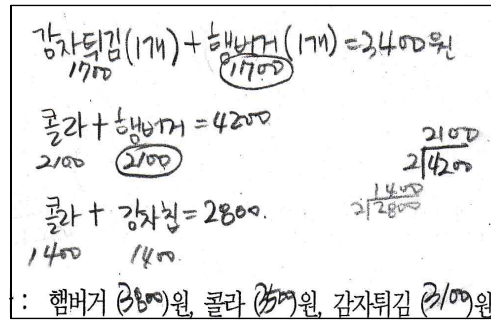 감자튀김(1개) + 햄버거(1개) = 3400원
1700 1700
콜라 + 햄버거 = 4200
2100 2100
2100
2)4200
1400
2)2800
콜라 + 감자칩 = 2800.
1400 1400
: 햄버거 (3800)원, 콜라 (3500)원, 감자튀김 (3100)원